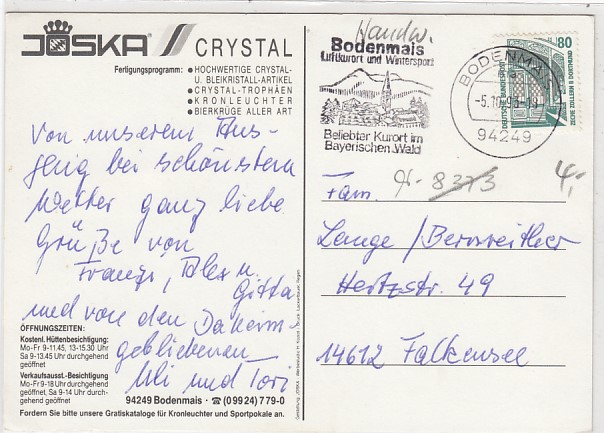 JOSKA CRYSTAL
Fertigungsprogramm: ● HOCHWERTIGE CRYSTAL-
U. BLEIKRISTALL-ARTIKEL
● CRYSTAL-TROPHÄEN
● KRONLEUCHTER
● BIERKRÜGE ALLER ART
Von unserem Aus-
flug bei schönstem
Wetter ganz liebe
Grüße von
Franzi, Alex u.
Gitta
und von den Daheim-
gebliebenen
Uli und Tori
ÖFFNUNGSZEITEN:
Kostenl. Hüttenbesichtigung:
Mo-Fr 9-11.45, 13-15.30 Uhr
Sa 9-13.45 Uhr durchgehend
geöffnet
Verkaufsausst.-Besichtigung
Mo-Fr 9-18 Uhr durchgehend
geöffnet, Sa 9-14 Uhr durch-
gehend geöffnet
94249 Bodenmais · ☎ (09924) 779-0
Fordern Sie bitte unsere Gratiskataloge für Kronleuchter und Sportpokale an.
Handw.
Bodenmais
Luftkurort und Wintersport
Beliebter Kurort im
Bayerischen Wald
BODENMAIS
-5.10.93-18
94249
80
DEUTSCHE BUNDESPOST
ZECHE ZOLLERN II DORTMUND
8373
4,-
Fam.
Lange/Bernreither
Hertzstr. 49
14612 Falkensee